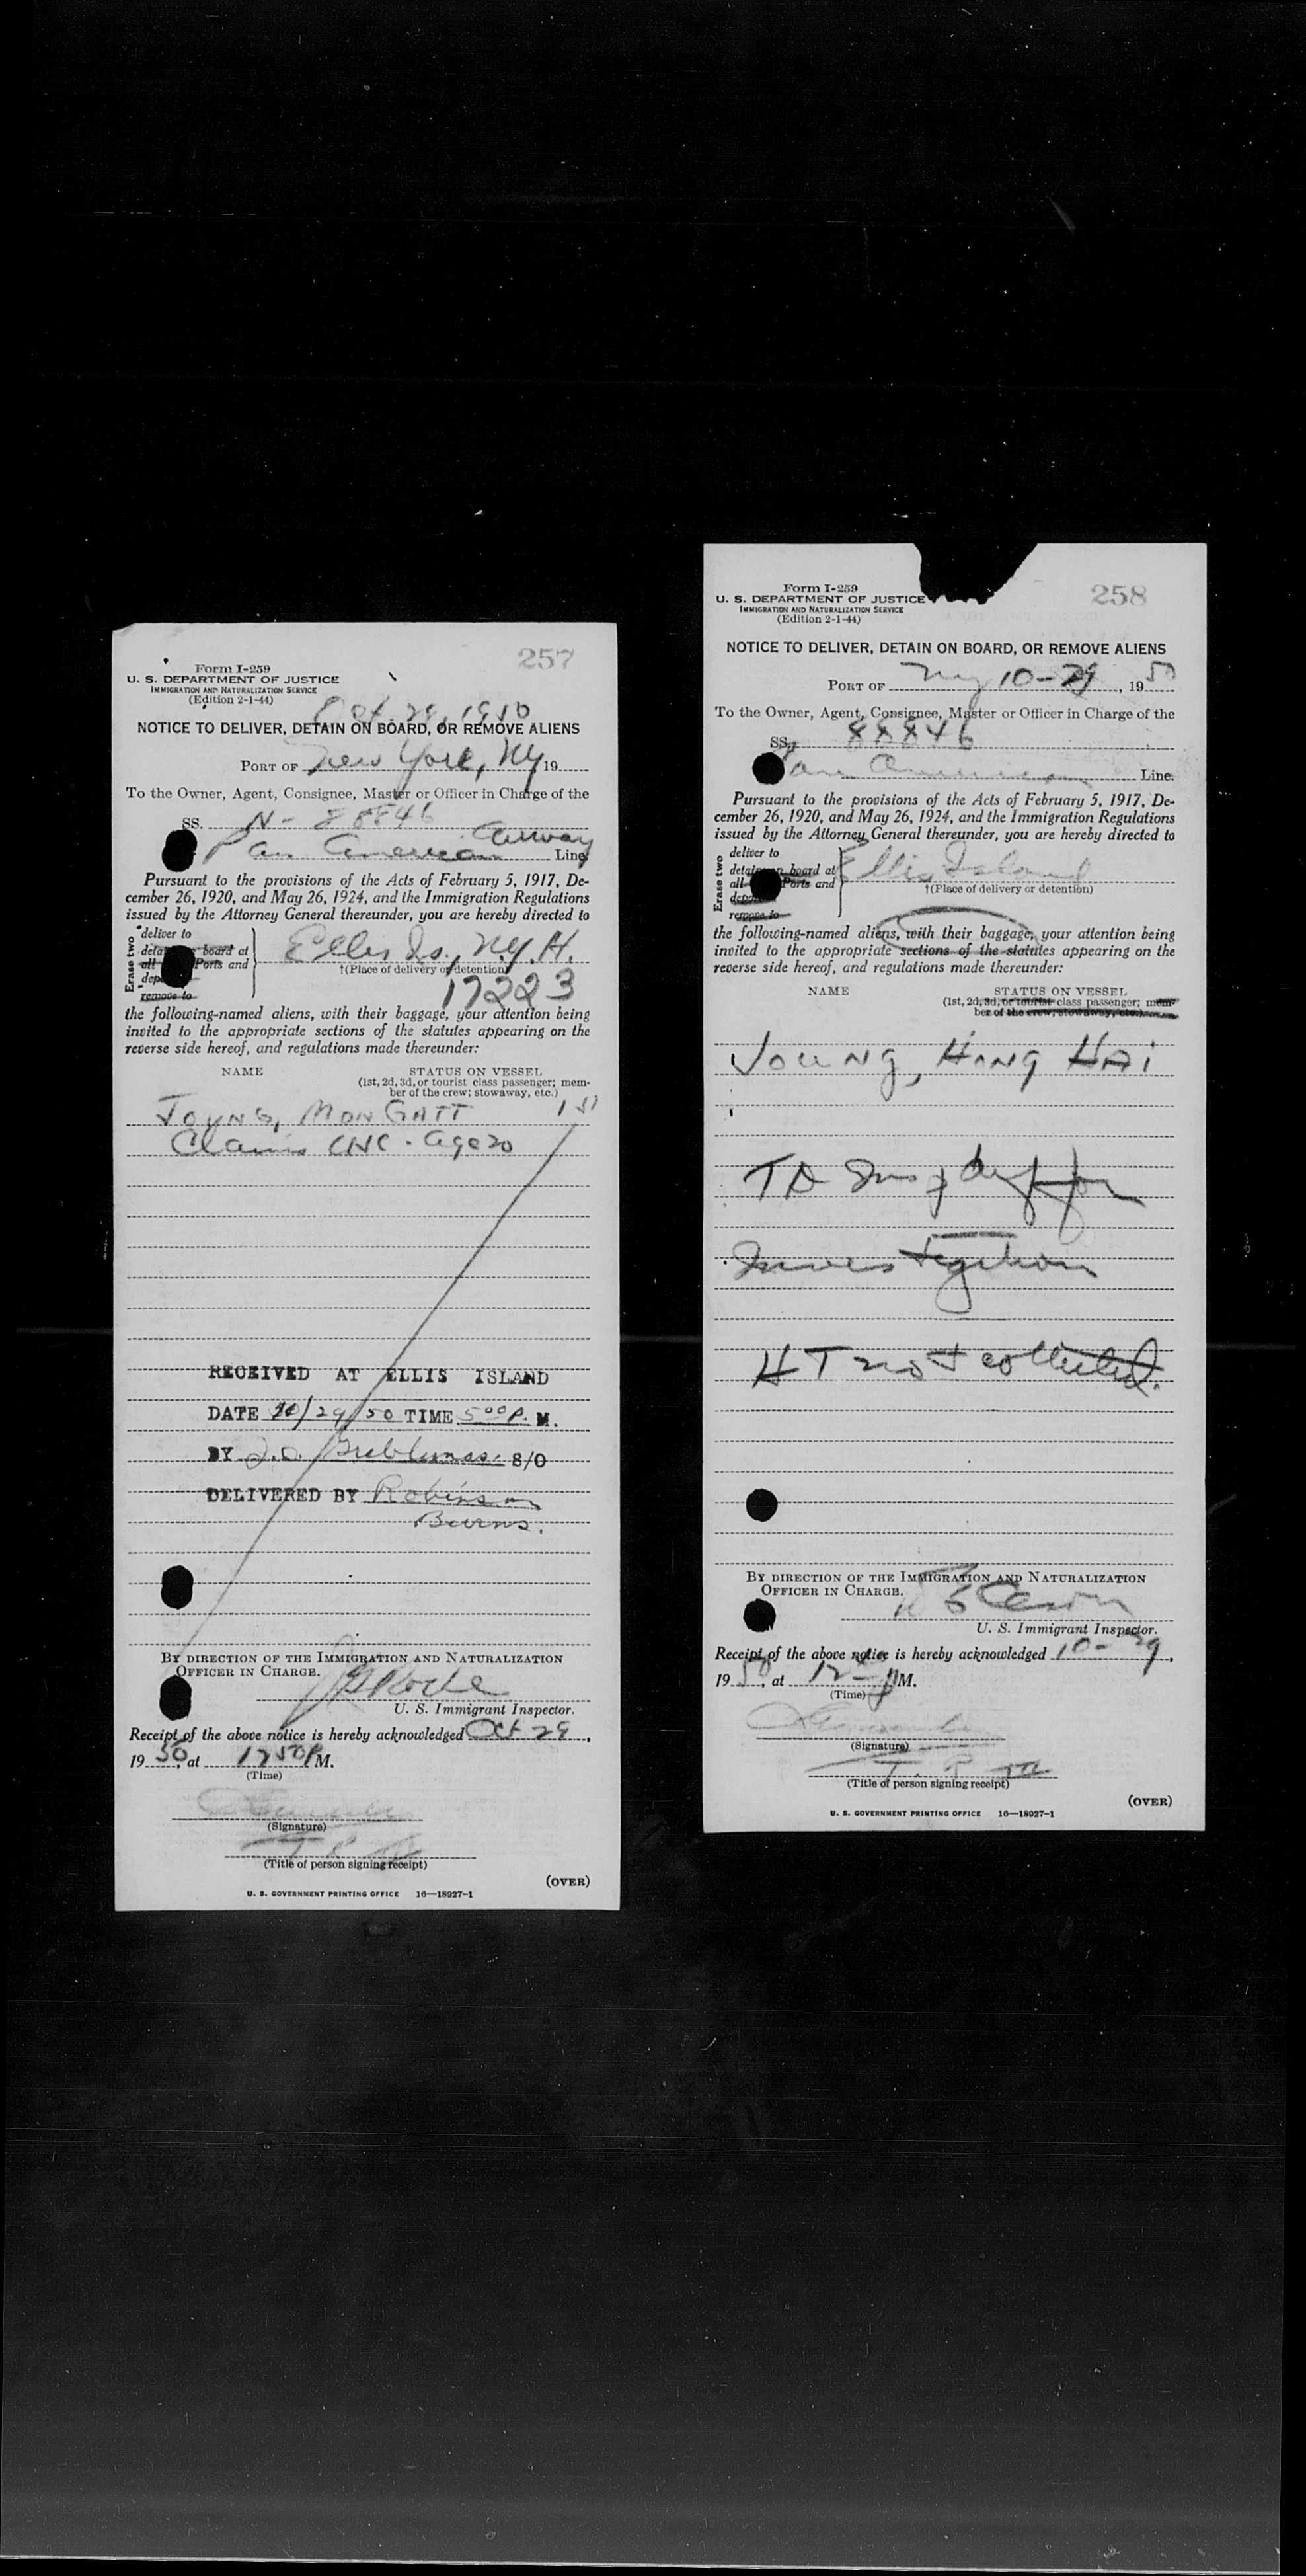 257
Form I-259
U. S. DEPARTMENT OF JUSTICE
IMMIGRATION AND NATURALIZATION SERVICE
(Edition 2-1-44)
Oct 29, 1950
NOTICE TO DELIVER, DETAIN ON BOARD, OR REMOVE ALIENS
PORT OF New York, NY 19
To the Owner, Agent, Consignee, Master or Officer in Charge of the
SS. N-88846
Pan American Airway Line
Pursuant to the provisions of the Acts of February 5, 1917, De-
cember 26, 1920, and May 26, 1924, and the Immigration Regulations
issued by the Attorney General thereunder, you are hereby directed to
Erase two
deliver to
board at
all Ports and
remove to
Ellis Is., N.Y.H.
†(Place of delivery or detention)
17223
the following-named aliens, with their baggage, your attention being
invited to the appropriate sections of the statutes appearing on the
reverse side hereof, and regulations made thereunder:
NAME STATUS ON VESSEL
(1st, 2d, 3d, or tourist class passenger; mem-
ber of the crew; stowaway, etc.)
YOUNG, MON GATT 1st
Claims age 20
RECEIVED AT ELLIS ISLAND
DATE 10/29/50 TIME 5 00 P. M.
BY S/O
DELIVERED BY Robinson
Burns.
BY DIRECTION OF THE IMMIGRATION AND NATURALIZATION
OFFICER IN CHARGE.
Roche
U. S. Immigrant Inspector.
Receipt of the above notice is hereby acknowledged Oct 29,
19 50, at 12 50 P M.
(Time)
(Signature)
(Title of person signing receipt)
(OVER)
U. S. GOVERNMENT PRINTING OFFICE 16—18027-1
258
Form I-259
U. S. DEPARTMENT OF JUSTICE
IMMIGRATION AND NATURALIZATION SERVICE
(Edition 2-1-44)
NOTICE TO DELIVER, DETAIN ON BOARD, OR REMOVE ALIENS
PORT OF NY 10-29, 19 50
To the Owner, Agent, Consignee, Master or Officer in Charge of the
SS. 88846
Pan American Line.
Pursuant to the provisions of the Acts of February 5, 1917, De-
cember 26, 1920, and May 26, 1924, and the Immigration Regulations
issued by the Attorney General thereunder, you are hereby directed to
Erase two
deliver to
detain on board at
all Ports and
remove to
Ellis Island
†(Place of delivery or detention)
the following-named aliens, with their baggage, your attention being
invited to the appropriate sections of the statutes appearing on the
reverse side hereof, and regulations made thereunder:
NAME STATUS ON VESSEL
(1st, 2d, 3d, or tourist class passenger; mem-
ber of the crew; stowaway, etc.)
YOUNG, HONG HAI
TD for
Investigation
HT not collected.
BY DIRECTION OF THE IMMIGRATION AND NATURALIZATION
OFFICER IN CHARGE.
U. S. Immigrant Inspector.
Receipt of the above notice is hereby acknowledged 10-29,
19 50, at 12 P M.
(Time)
(Signature)
(Title of person signing receipt)
(OVER)
U. S. GOVERNMENT PRINTING OFFICE 16—18027-1